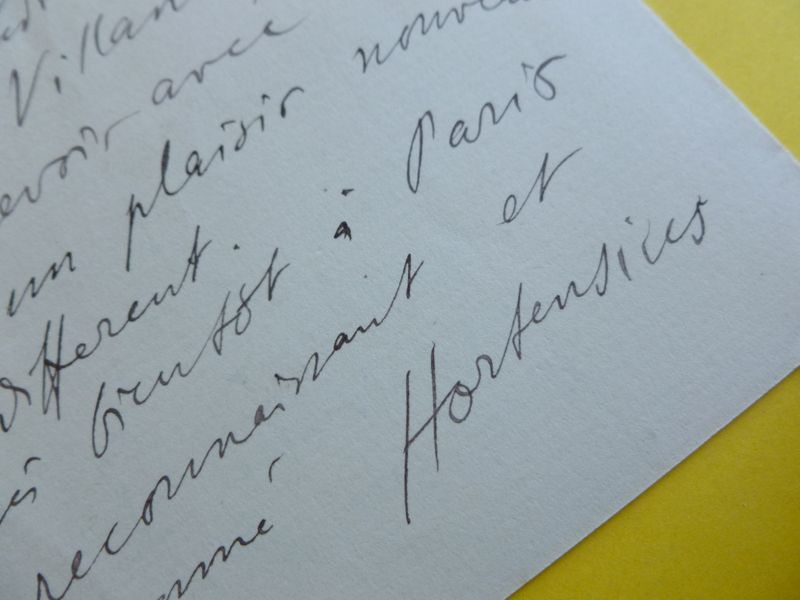 Villan
evoir avec
un plaisir nouve
différent.
ès bientôt à Paris
reconnaissant et
mmé Hortensius